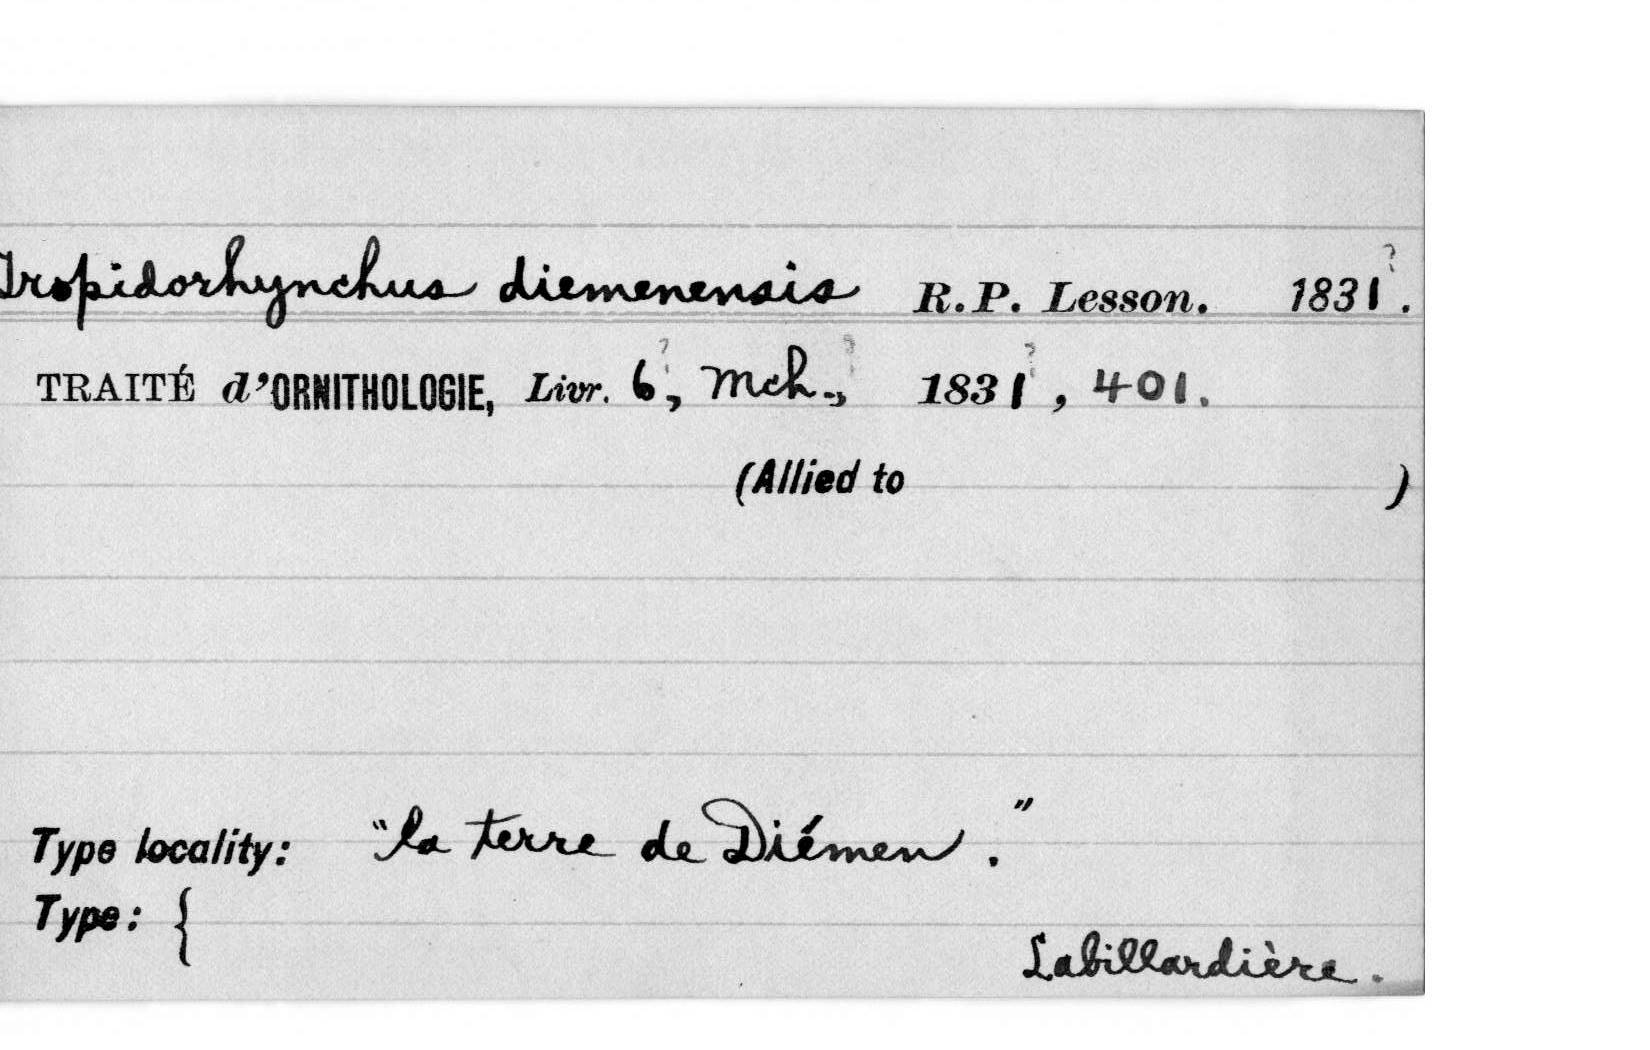 Tropidorhynchus diemenensis R.P. Lesson. 1831?.
TRAITÉ d'ORNITHOLOGIE, Livr. 6?, Mch.?, 1831?, 401.
(Allied to )
Type locality: "la terre de Diémen."
Type: {
Labillardière.